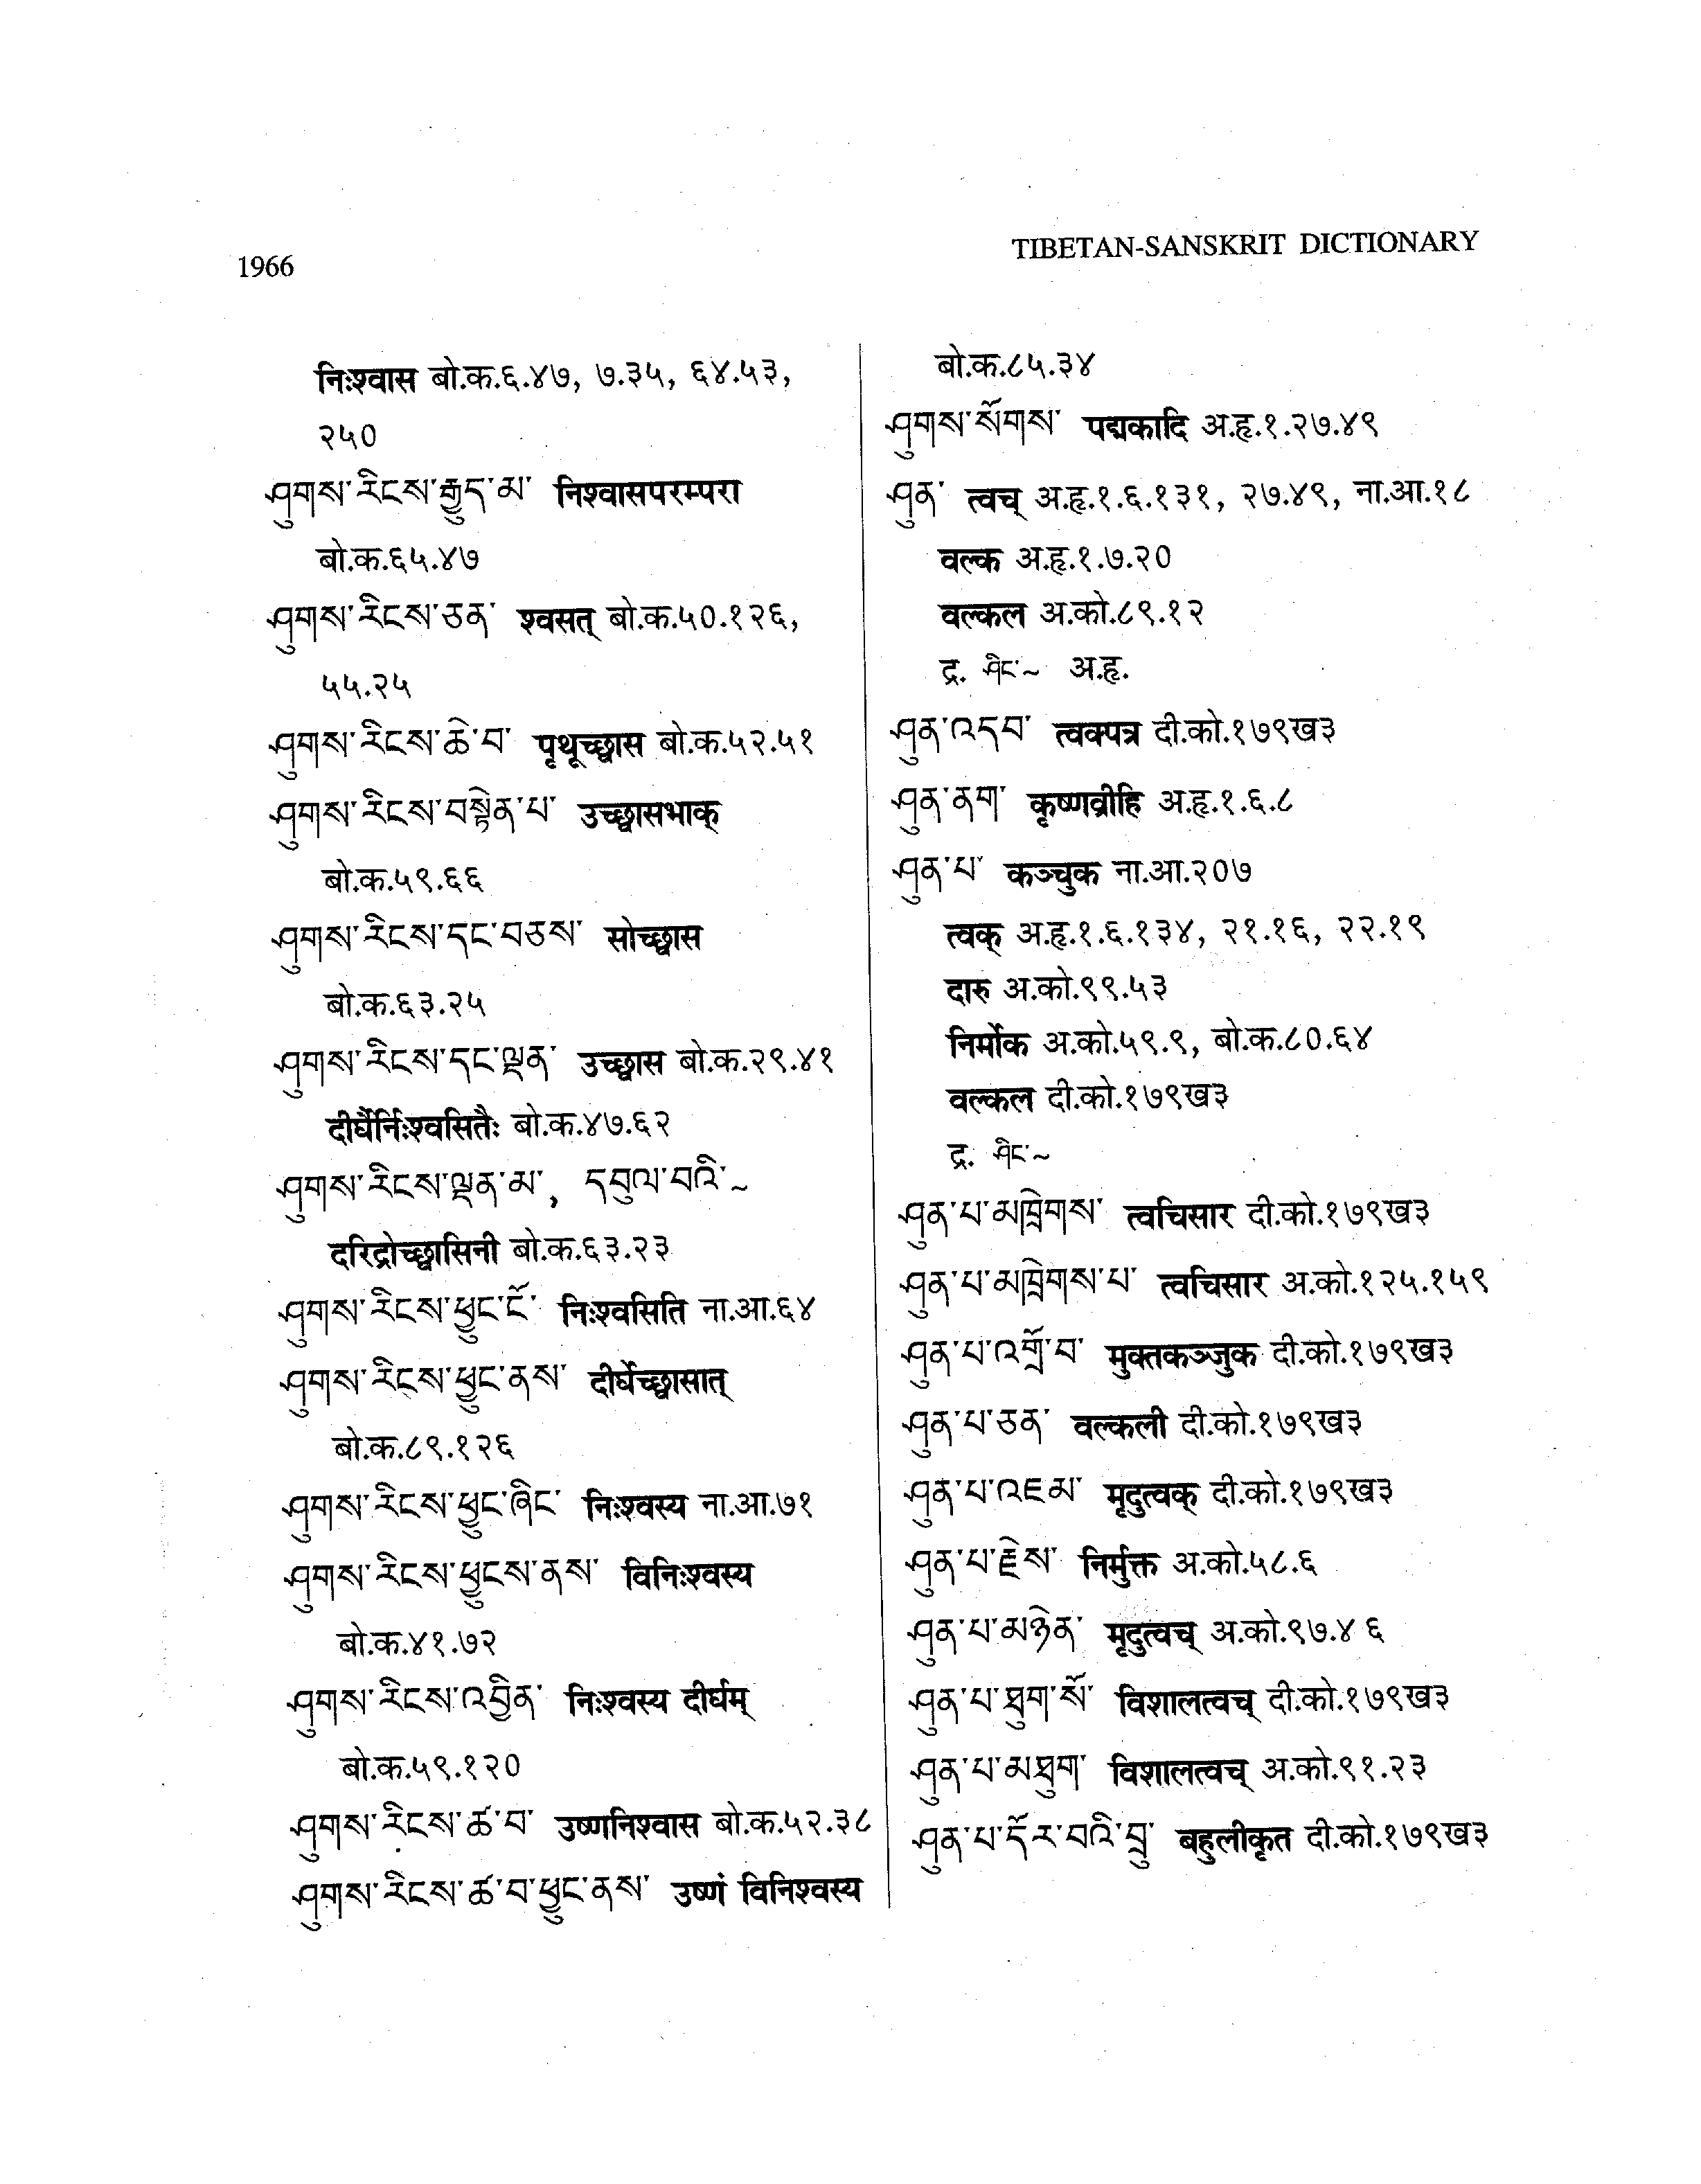 1966
TIBETAN-SANSKRIT DICTIONARY
निःश्वास बो.क.६.४७, ७.३५, ६४.५३,
२५०
ཤུགས་རིངས་རྒྱུད་མ་ निश्वासपरम्परा
बो.क.६५.४७
ཤུགས་རིངས་ཅན་ श्वसत् बो.क.५०.१२६,
५५.२५
ཤུགས་རིངས་ཆེ་བ་ पृथूच्छ्वास बो.क.५२.५१
ཤུགས་རིངས་བསྟེན་པ་ उच्छ्वासभाक्
बो.क.५९.६६
ཤུགས་རིངས་དང་བཅས་ सोच्छ्वास
बो.क.६३.२५
ཤུགས་རིངས་དང་ལྡན་ उच्छ्वास बो.क.२९.४१
दीर्घैर्निःश्वसितैः बो.क.४७.६२
ཤུགས་རིངས་ལྡན་མ་, དབུལ་བའི་~
दरिद्रोच्छ्वासिनी बो.क.६३.२३
ཤུགས་རིངས་ཕྱུང་ངོ་ निःश्वसिति ना.आ.६४
ཤུགས་རིངས་ཕྱུང་ནས་ दीर्घेच्छ्वासात्
बो.क.८९.१२६
ཤུགས་རིངས་ཕྱུང་ཞིང་ निःश्वस्य ना.आ.७१
ཤུགས་རིངས་ཕྱུངས་ནས་ विनिःश्वस्य
बो.क.४१.७२
ཤུགས་རིངས་འབྱིན་ निःश्वस्य दीर्घम्
बो.क.५९.१२०
ཤུགས་རིངས་ཚ་བ་ उष्णनिश्वास बो.क.५२.३८
ཤུགས་རིངས་ཚ་བ་ཕྱུང་ནས་ उष्णं विनिश्वस्य
बो.क.८५.३४
ཤུགས་སོགས་ पद्मकादि अ.हृ.१.२७.४९
ཤུན་ त्वच् अ.हृ.१.६.१३१, २७.४९, ना.आ.१८
वल्क अ.हृ.१.७.२०
वल्कल अ.को.८९.१२
द्र. ཤིང་~ अ.हृ.
ཤུན་འདབ་ त्वक्पत्र दी.को.१७९ख३
ཤུན་ནག་ कृष्णव्रीहि अ.हृ.१.६.८
ཤུན་པ་ कञ्चुक ना.आ.२०७
त्वक् अ.हृ.१.६.१३४, २१.१६, २२.१९
दारु अ.को.९९.५३
निर्मोक अ.को.५९.९, बो.क.८०.६४
वल्कल दी.को.१७९ख३
द्र. ཤིང་~
ཤུན་པ་མཁྲེགས་ त्वचिसार दी.को.१७९ख३
ཤུན་པ་མཁྲེགས་པ་ त्वचिसार अ.को.१२५.१५९
ཤུན་པ་འགྲོ་བ་ मुक्तकञ्जुक दी.को.१७९ख३
ཤུན་པ་ཅན་ वल्कली दी.को.१७९ख३
ཤུན་པ་འཇམ་ मृदुत्वक् दी.को.१७९ख३
ཤུན་པ་རྗེས་ निर्मुक्त अ.को.५८.६
ཤུན་པ་མཉེན་ मृदुत्वच् अ.को.९७.४६
ཤུན་པ་ཐུག་སོ་ विशालत्वच् दी.को.१७९ख३
ཤུན་པ་མཐུག་ विशालत्वच् अ.को.९१.२३
ཤུན་པ་དོར་བའི་བྲུ་ बहुलीकृत दी.को.१७९ख३